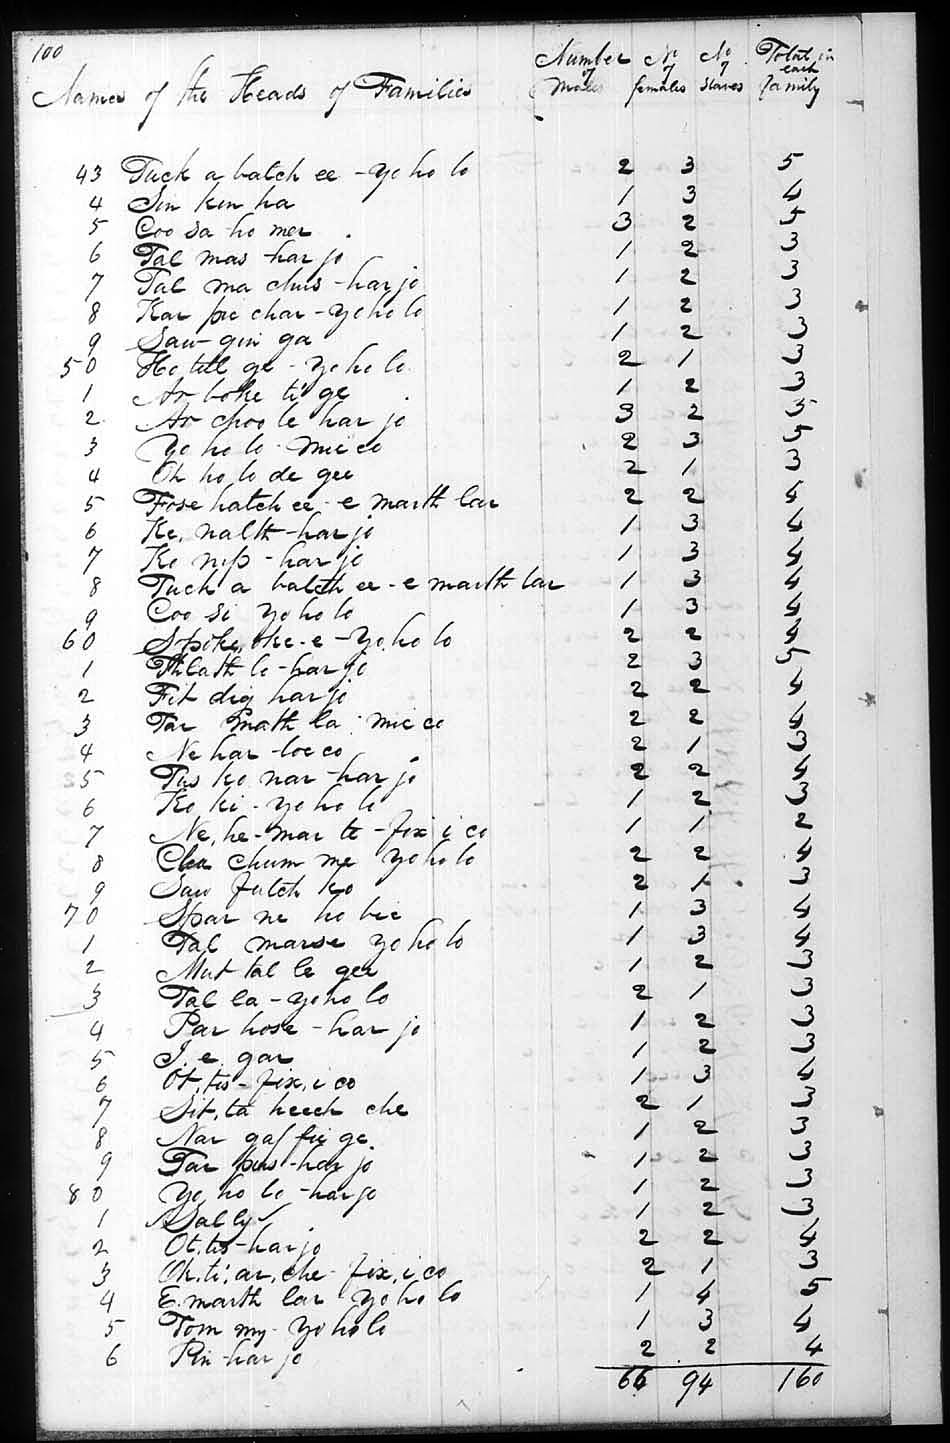 100
Number No No Total in
of of of each
Names of the Heads of Families Males females Slaves family
43 Tuck a batch ee - yo ho lo 2 3 5
4 Sin kin ha 1 3 4
5 Coo sa - ho mer 3 2 5
6 Tal mas - har jo 1 2 3
7 Tal ma chus - har jo 1 2 3
8 Kar pic char - yo ho lo 1 2 3
9 Saw - gin ga 1 2 3
50 Ho till ge - yo ho lo 2 1 3
1 Ar boke ti ge 1 2 3
2 Ar choo le har jo 3 2 5
3 Yo ho lo - mic co 2 3 5
4 Oh ho lo de gee 2 1 3
5 Fose hatch ee - e marth lar 2 2 4
6 Ke, nalth - har jo 1 3 4
7 Ko nip - har jo 1 3 4
8 Tuck a batch ee - e marth lar 1 3 4
9 Coo si yo ho lo 1 3 4
60 Spoke, oke - e - yo, ho lo 2 2 4
1 Thlath lo - har jo 2 3 5
2 Fit dig har jo 2 2 4
3 Tar math la - mic co 2 2 4
4 Ne har - loc co 2 1 3
5 Tus ko nar - har jo 2 2 4
6 Ko ki - yo ho lo 1 2 3
7 Ne, he - mar te - fix i co 1 1 2
8 Cha chum me yo ho lo 2 2 4
9 Saw futch ko 2 1 3
70 Spar ne ho bic 1 3 4
1 Tal marse yo ho lo 1 3 4
2 Mut tal le gee 1 2 3
3 Tal la - yo ho lo 2 1 3
4 Par hose - har jo 1 2 3
5 I. e. gar 1 2 3
6 Ot, tis - fix, i co 1 3 4
7 Sit, ta heech che 2 1 3
8 Nar gaf fie ge 1 2 3
9 Tar pus - har jo 1 2 3
80 Yo, ho lo - har jo 1 2 3
1 Sally 1 2 3
2 Ot, tis - har jo 2 2 4
3 Oh, ti, ar, che - fix, i co 2 1 3
4 E. marth lar yo ho lo 1 4 5
5 Tom my - Yo ho lo 1 3 4
6 Pin - har jo 2 2 4
66 94 160